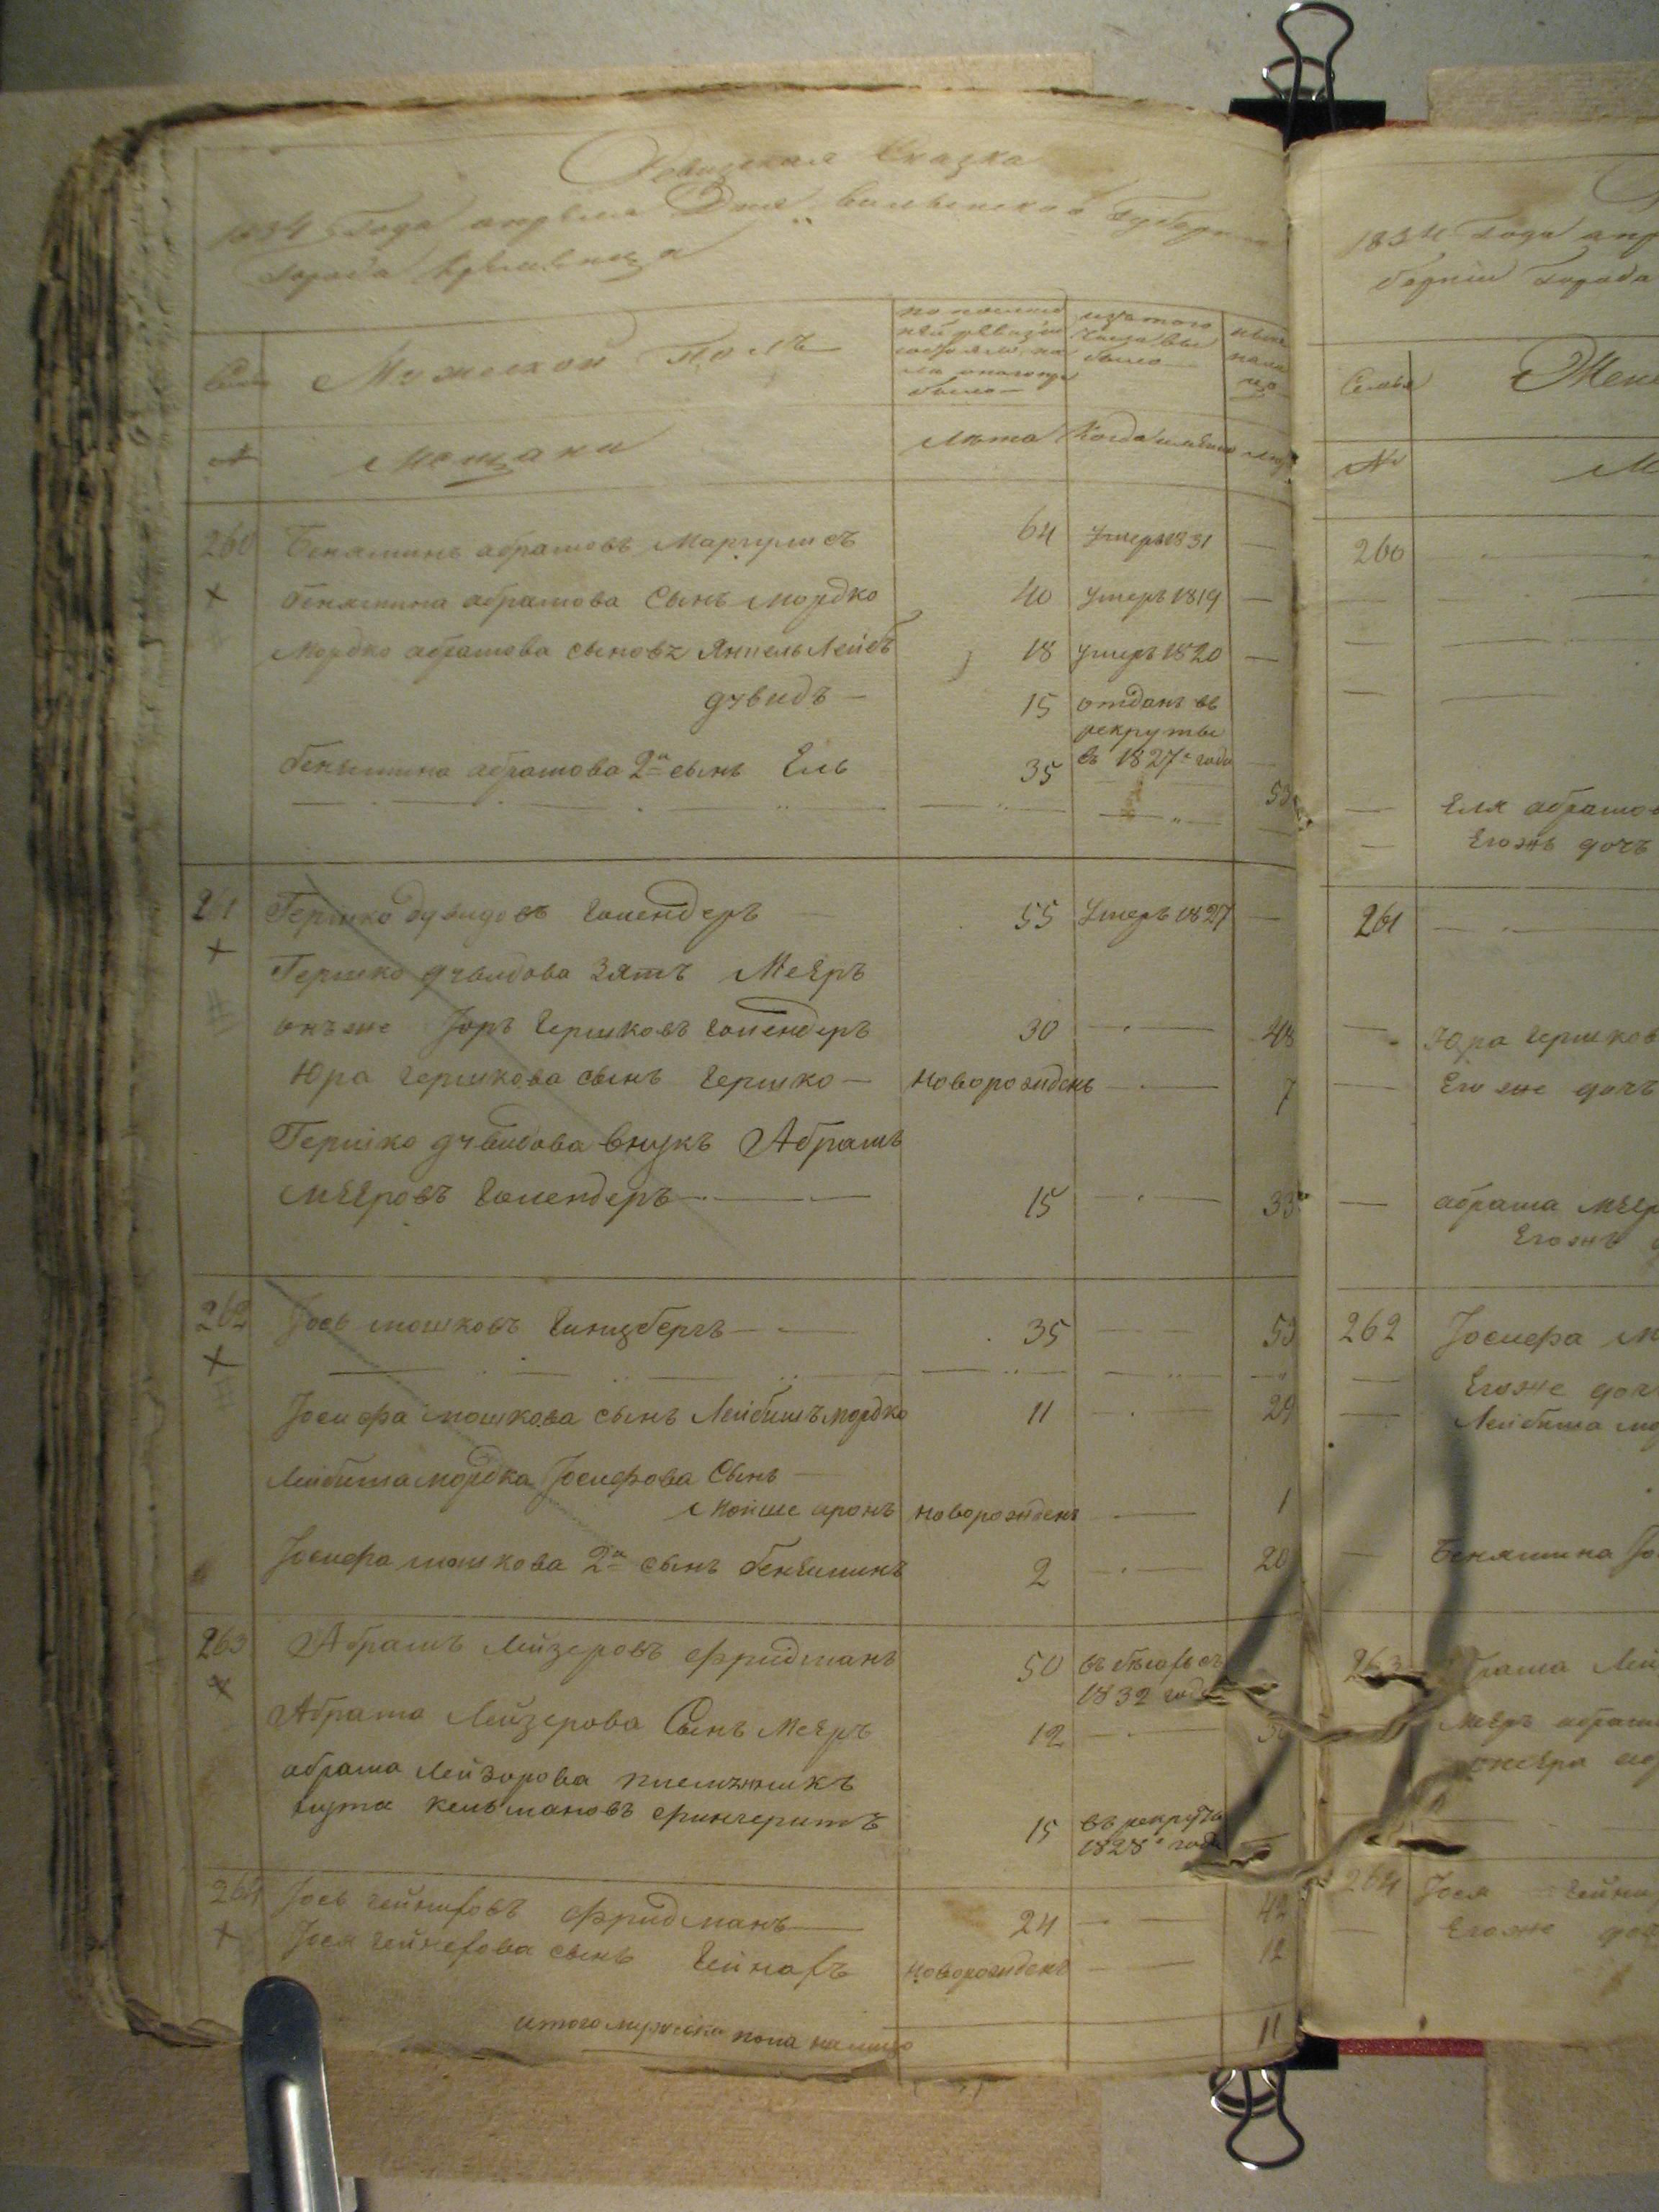 Ревизская Сказка
1834 Года апреля Дня Волынской Губернии
Города Кременца
Мужеской Полъ
по последней ревизии состояло и после оной прибыло
изъ того числа выбыло
ныне на лицо
№ Мещани Лѣта Когда именно Лѣта
260 Беняминъ абрамовъ Маргулисъ 64 Умеръ 1831 —
× бенямина абрамова Сынъ Мордко 40 Умеръ 1819 —
Мордко абрамова сыновъ Янкель Лейбъ 18 умеръ 1820 —
дувидъ — 15 отданъ въ
рекруты
въ 1827 году
бенямина абрамова 2й сынъ Ель 35 53
261 Гершко дувидовъ Голендеръ 55 Умеръ 1827 —
× Гершко дувидова Зять Меѣръ
онъ же Юръ Гершковъ Голендеръ 30 — 48
Юра Гершкова сынъ Гершко — новорожденъ — 7
Гершко дувидова внукъ Абрамъ
Меѣровъ Голендеръ — 15 — 33
262 Іось мошковъ Гинцбергъ — 35 — 53
×
Іосифа мошкова сынъ Лейбишъ мордко 11 — 29
Лейбиша мордка Іосифова Сынъ —
Мойше аронъ новорожденъ — 1
Іосифа мошкова 2й сынъ бенъиминъ 2 — 20
263 Абрамъ Лейзеровъ Фридманъ 50 въ бѣгахъ съ
1832 года
× Абрама Лейзерова Сынъ Меѣръ 12 — 30
абрама Лейзорова племянникъ
кельмановъ 15 въ рекруты
1828 года
264 Іось Гейниховъ Фридманъ — 24 — 42
× Іося Гейнехова сынъ Гейнахъ новорожденъ — 12
итого мужеска пола налицо 11
1834 Года апр
Города
Семья Жен
№ М
260
Еля абрамо
Егожъ дочъ
261
Юра Гершков
Его же дочъ
абрама меѣр
Егожъ
262 Іосифа М
Егоже доч
Лейбиша мо
Бенямина Іо
263 Лей
Меѣръ абрам
264 Іося Гейни
Егоже доч